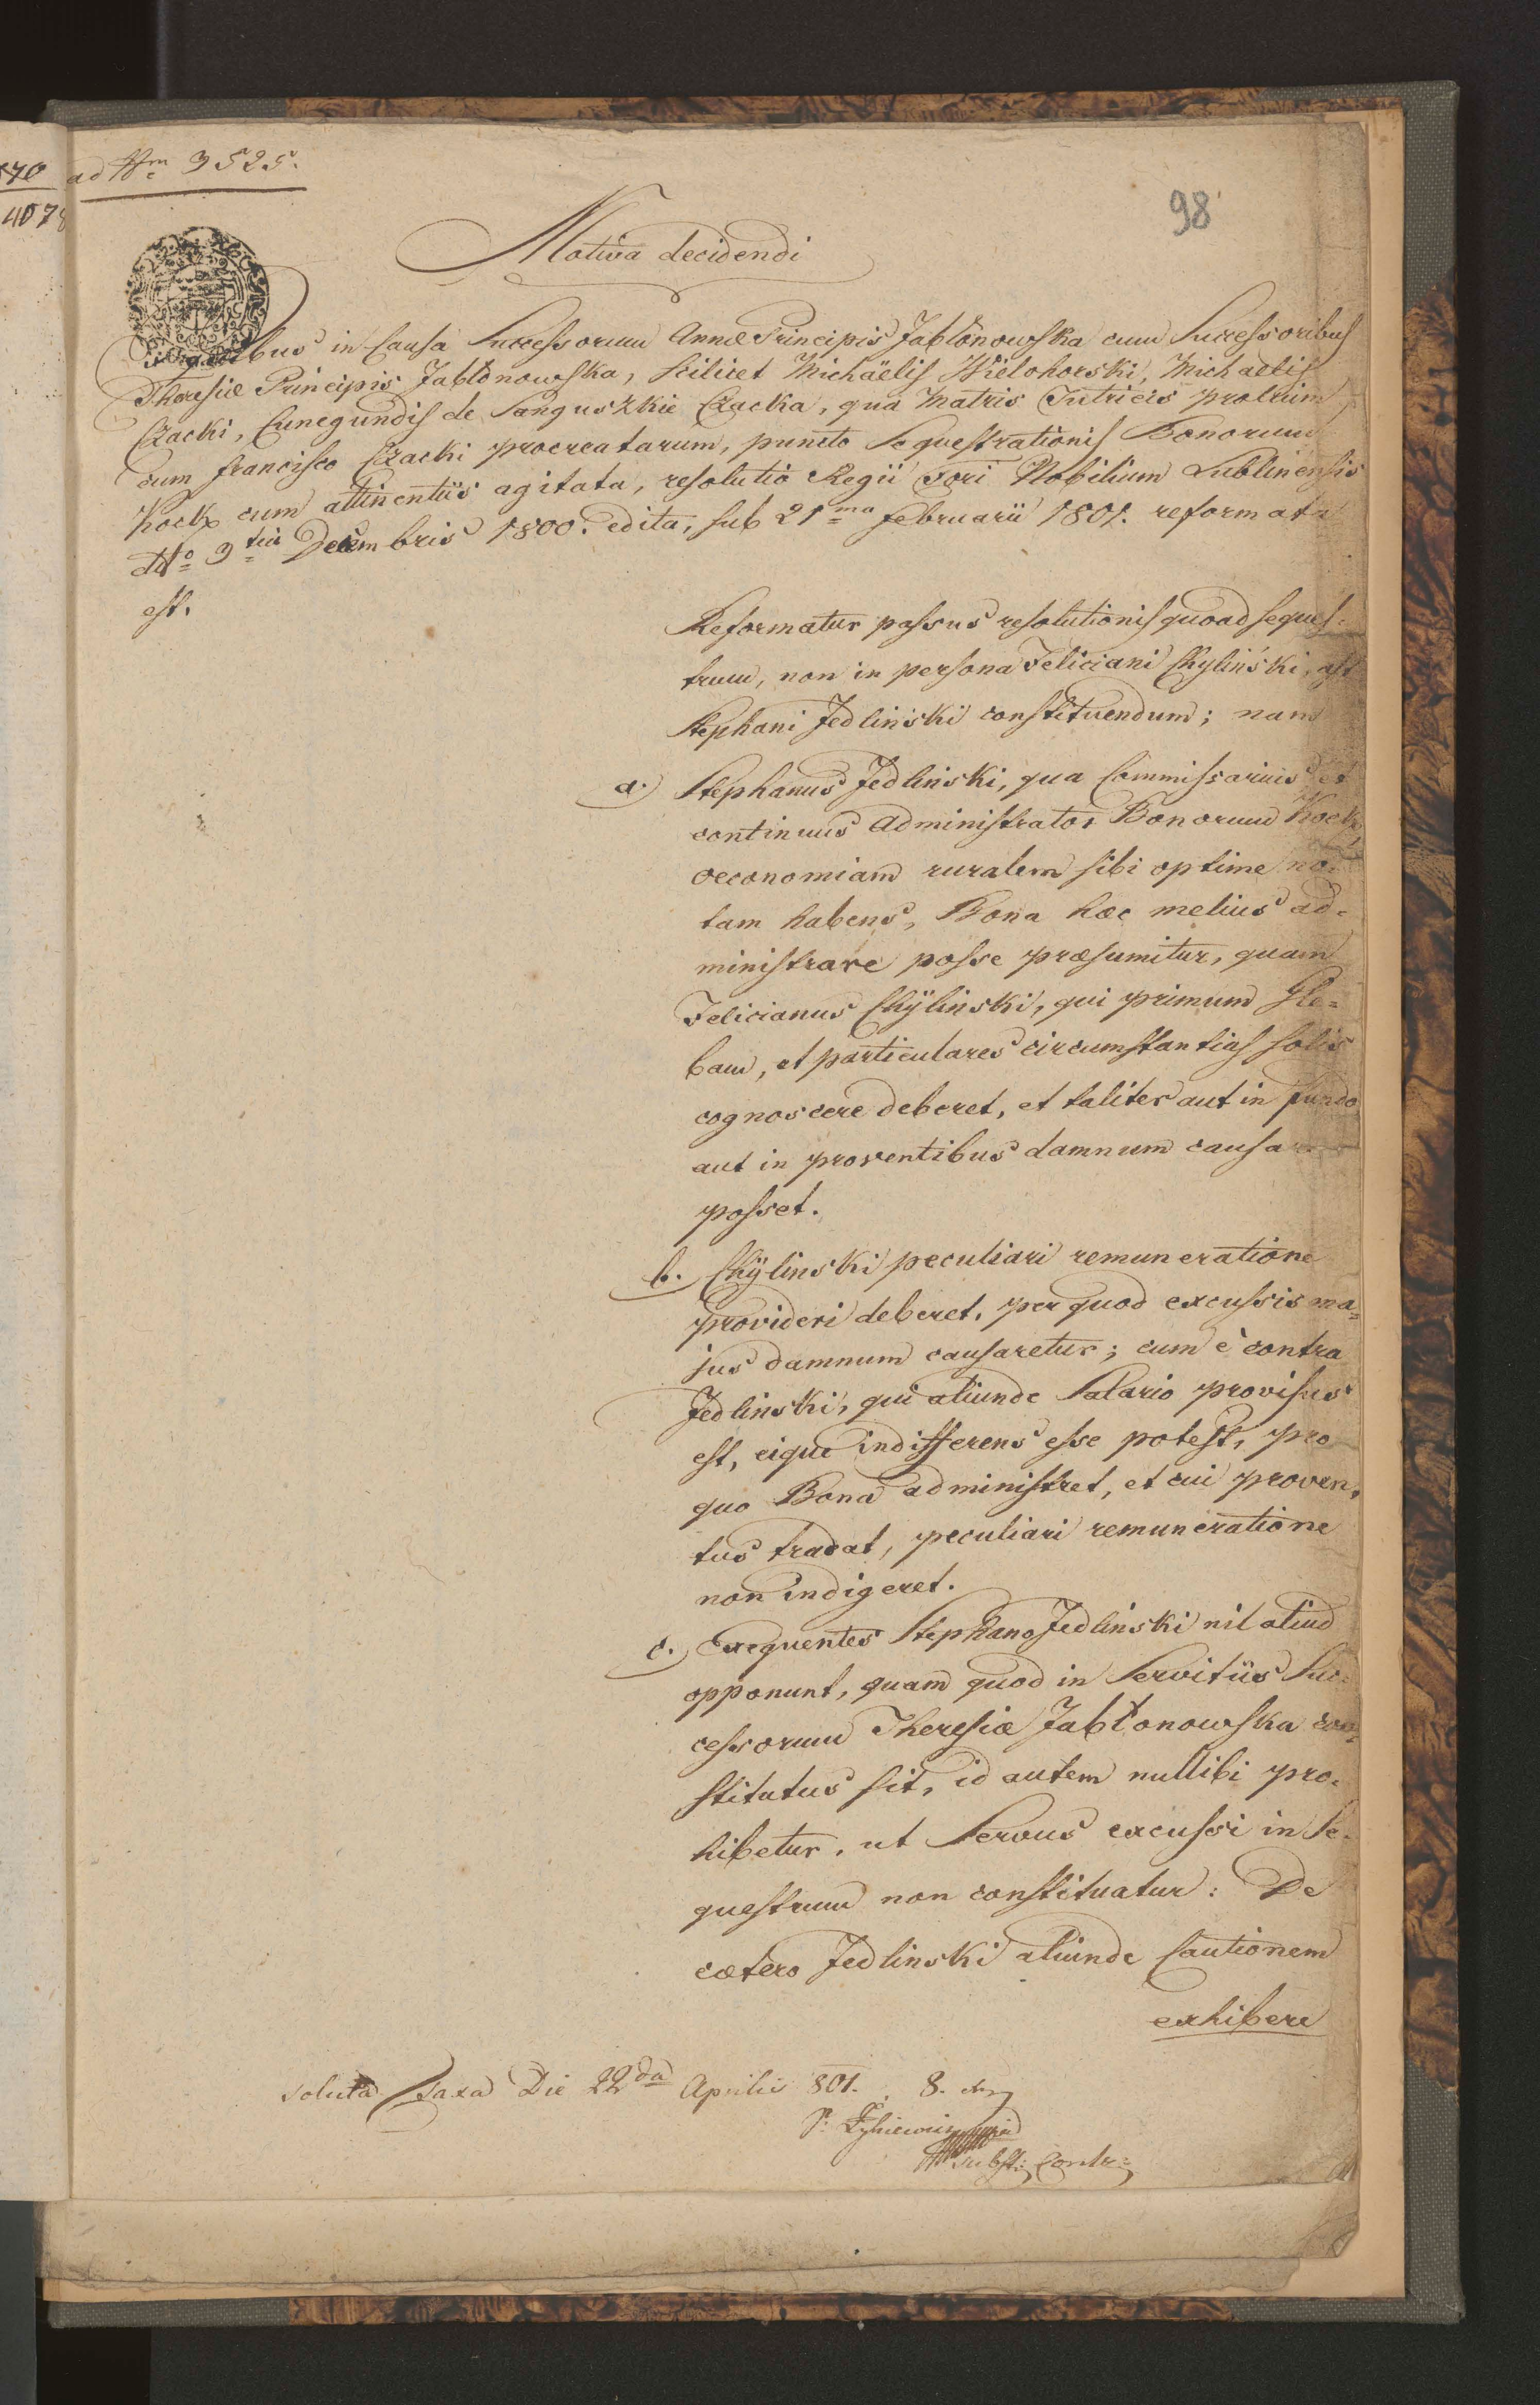 ad Nrm 3525.
98
Motiva decidendi
Exquibus in Causa Successorum Annæ Principis Jabłonowska cum Successoribus
Theresiæ Principis Jabłonowska, scilicet Michaëlis Wielohorski, Michaelis
Czacki, Cunegundis de Sanguszkie Czacka, qua Matris Tutricis prolium
cum Francisco Czacki procreatarum, puncto Sequestrationis Bonorum
Kock cum attinentiis agitata, resolutio Regii Fori Nobilium Lublinensis
ddto 9tia Decembris 1800. edita, sub 21ma Februarii 1801. reformata
est.
Reformatur passus resolutionis quoad seques-
trum, non in persona Feliciani Chyliński, ast
Stephani Jedliński constituendum; nam
a. Stephanus Jedlinski, qua Commissarius et
continuus administrator Bonorum Kock,
oeconomiam ruralem sibi optime no-
tam habens, Bona hæc melius ad-
ministrare posse præsumitur, quam
Felicianus Chÿlinski, qui primum Gle-
bam, et particulares circumstantias solis
cognoscere deberet, et taliter aut in fundo
aut in proventibus damnum causare
posset.
b. Chÿlinski peculiari remuneratione
provideri deberet, per quod excussis ma-
jus damnum causaretur; cum è contra
Jedlinski, qui aliunde Salario provisus
est, eique indifferens esse potest, pro
quo Bona administret, et cui proven-
tus tradat, peculiari remuneratione
non indigeret.
c. Exequentes Stephano Jedlinski nil aliud
opponunt, quam quod in Servitiis Suc-
cessorum Theresiæ Jabłonowska con-
stitutus sit, id autem nullibi pro-
hibetur, ut Servus excussi in Se-
questrum non constituatur: De
cætero Jedlinski aliunde Cautionem
exhibere
soluta Taxa Die 22da Aprilis 801. 8.
Subst: Contr: